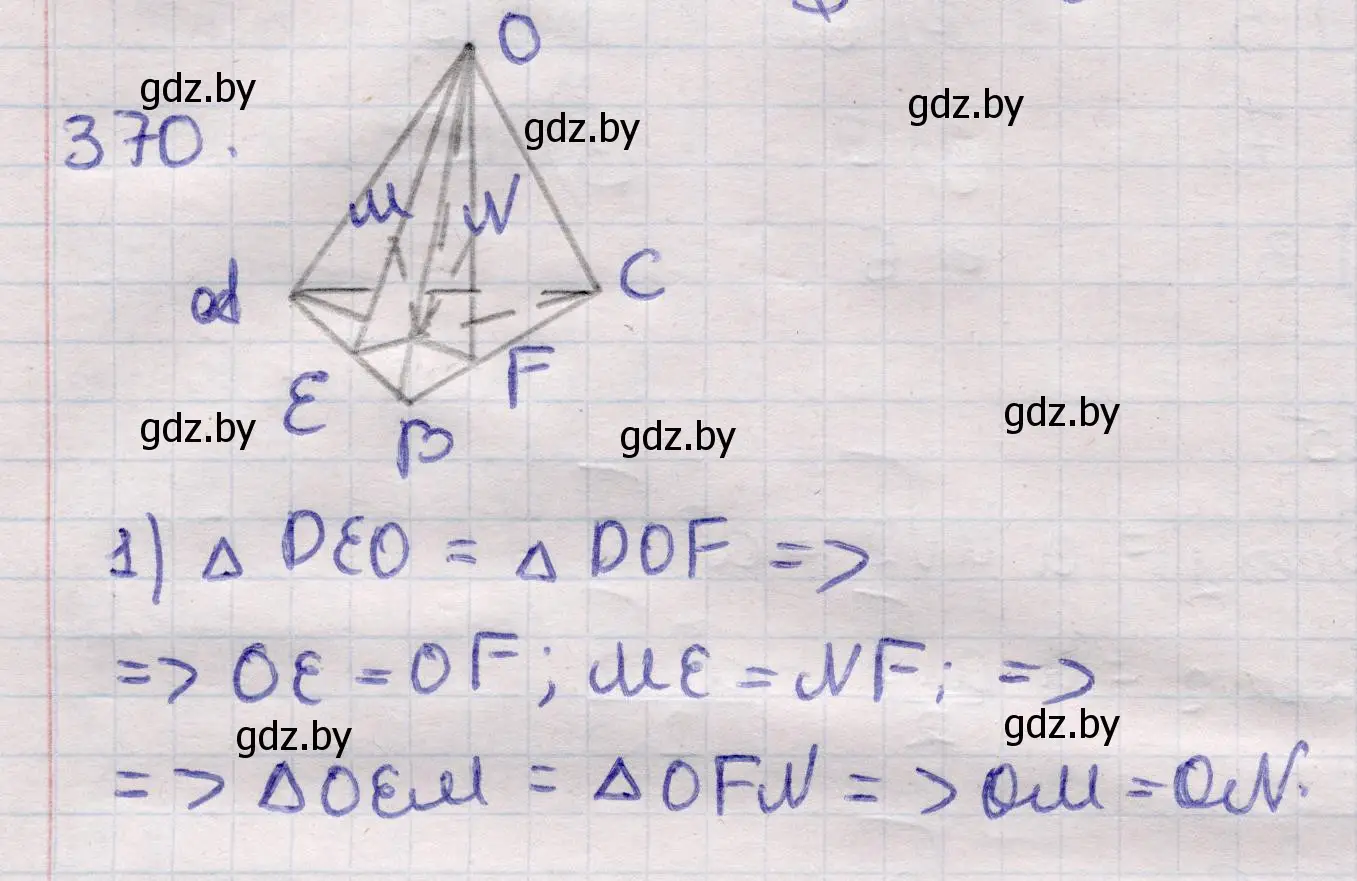 O
gdz.by
gdz.by
gdz.by
370.
M N
A
C
E
F
B
gdz.by
gdz.by
gdz.by
1) △ DEO = △ DOF =>
=> OE = OF; ME = NF; =>
gdz.by
gdz.by
=> △OEM = △OFN => OM = ON.